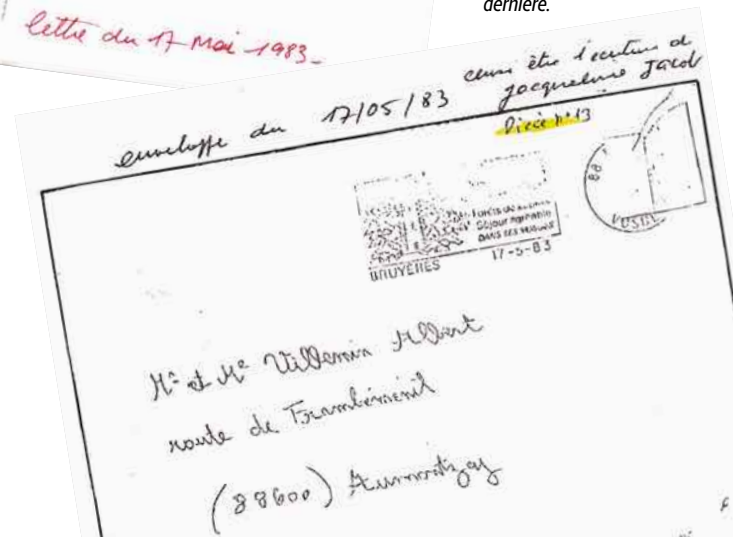 dernière.
lettre du 17 Mai 1983_
enveloppe du 17/05/83 censé être l'ecriture de
Jacqueline Jacob
Pièce n°13
Séjour agréable
DANS LES VOSGES
BRUYERES 17-5-83
88
VOSGES
Mr et Me Villemin Albert
route de Frambéménil
(88600) Aumontzey